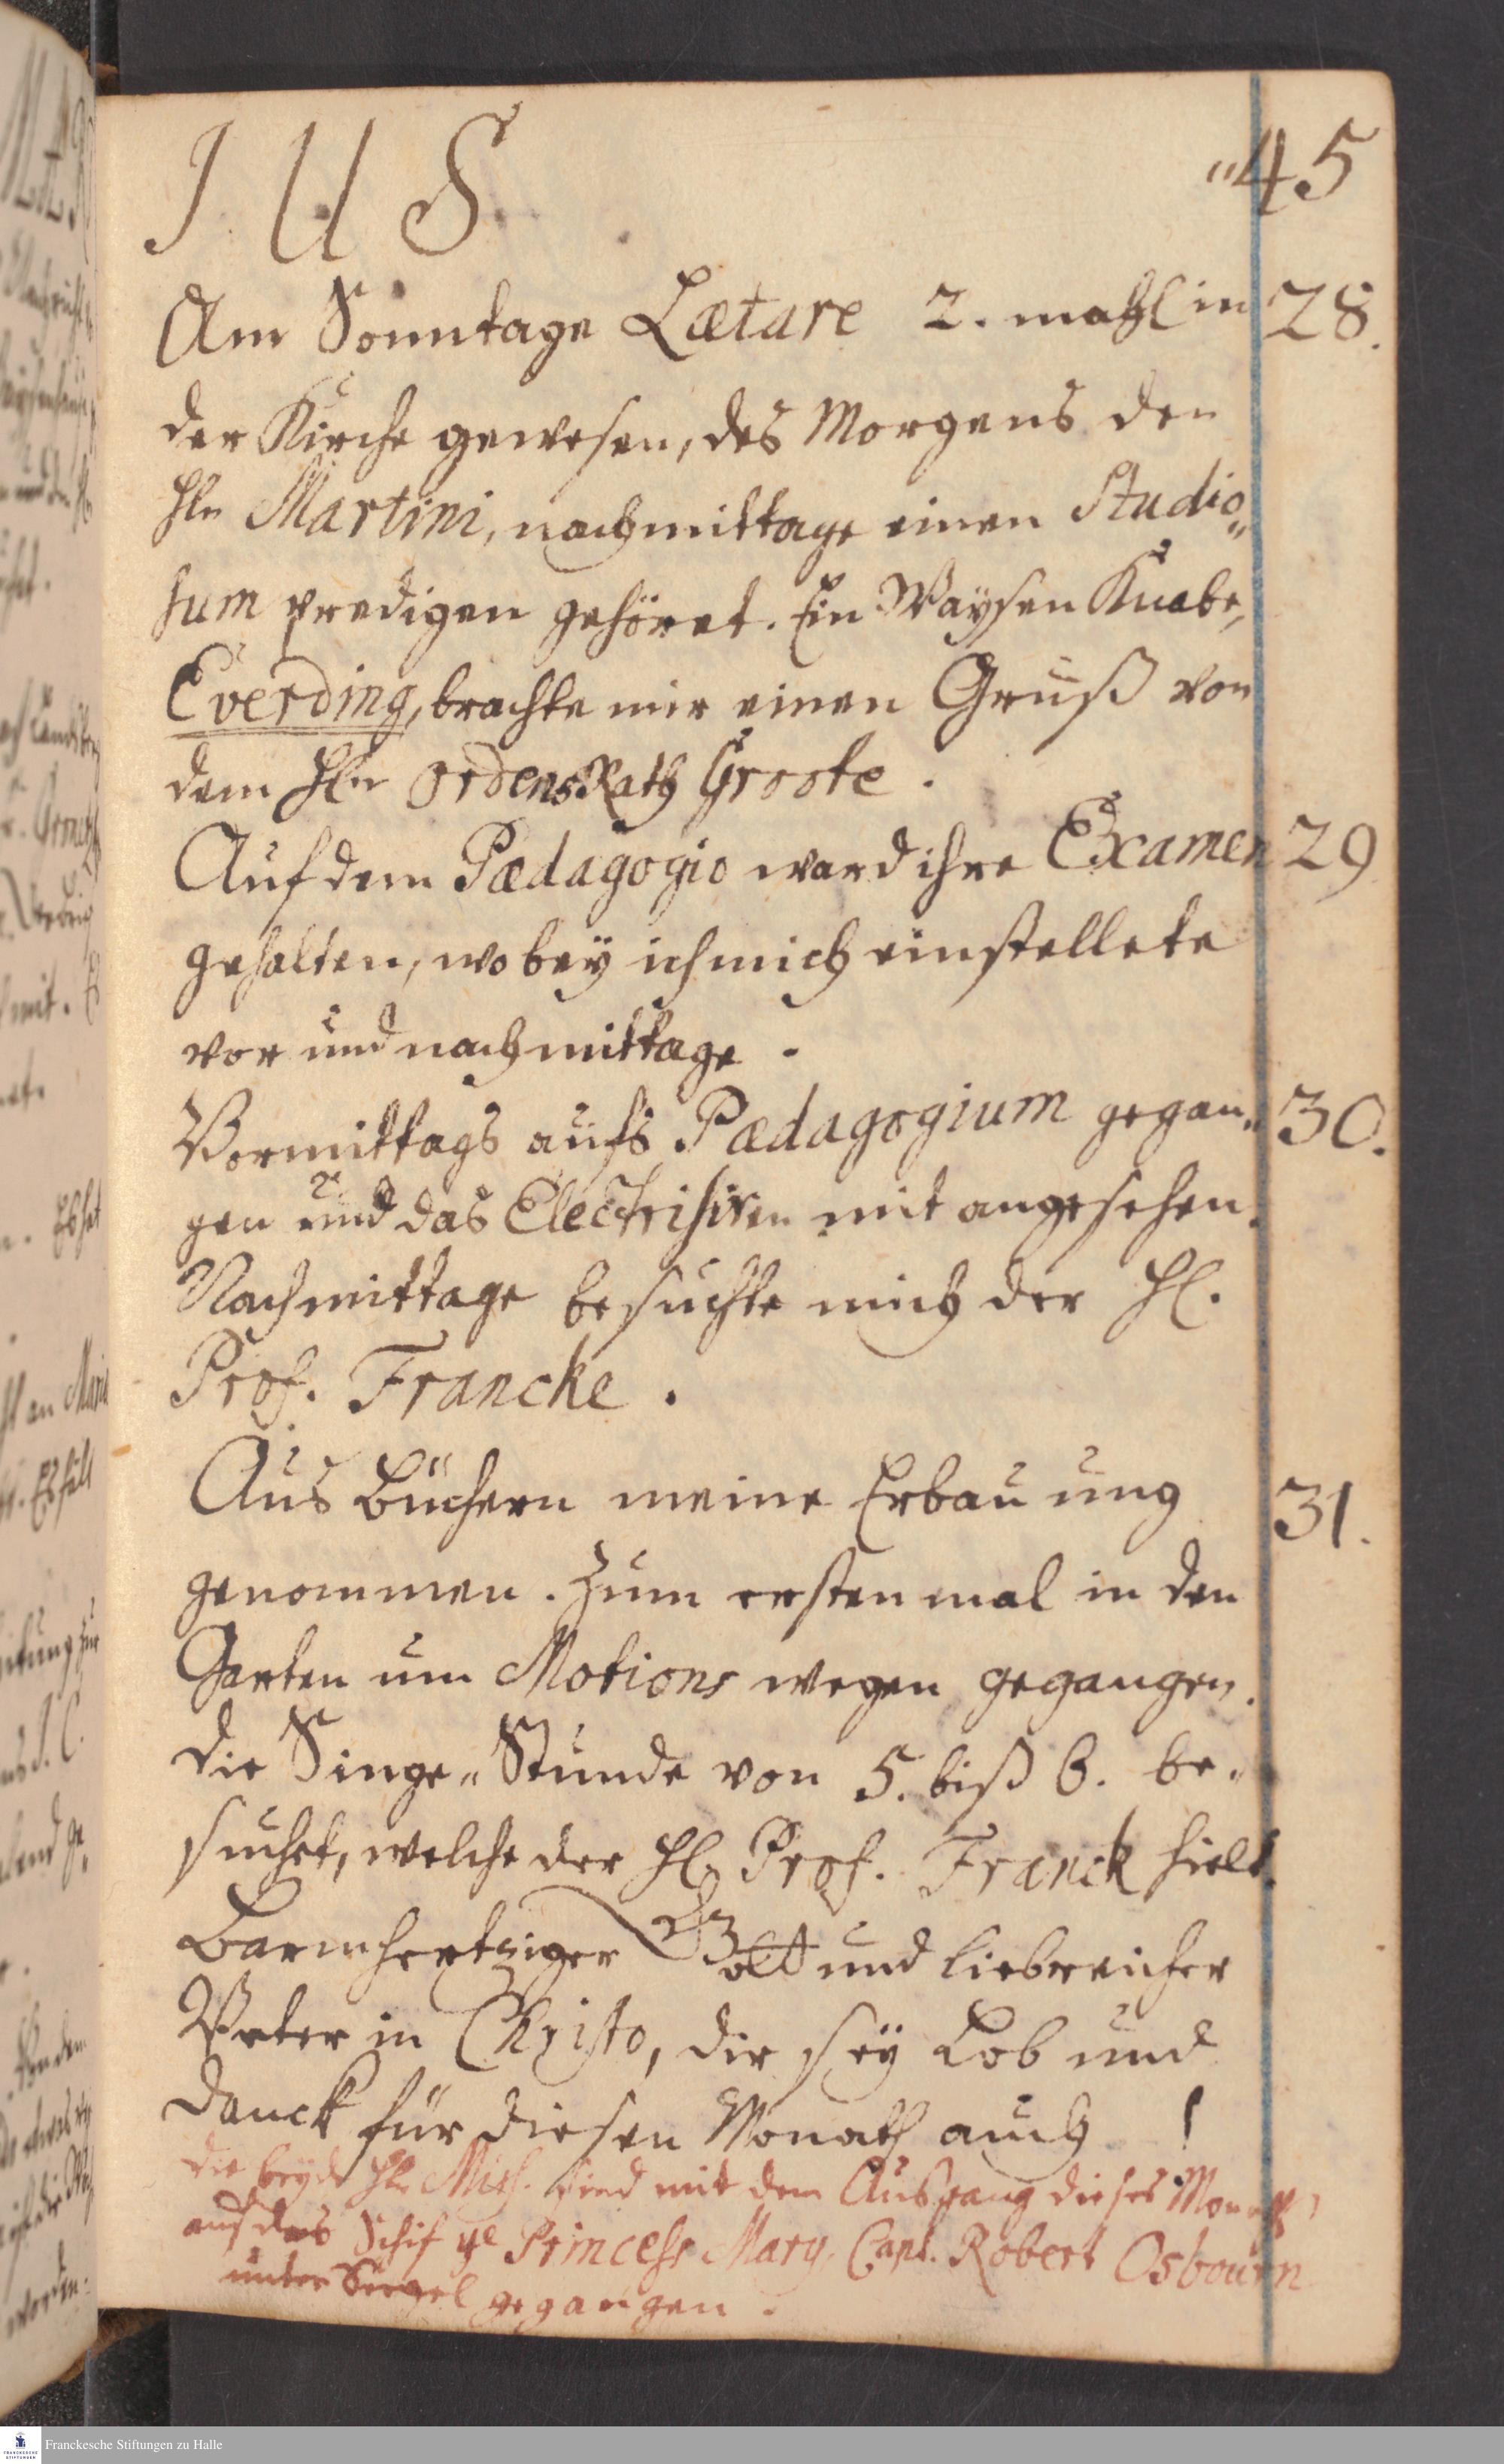 J U S. "45
Am Sonntage Lætare 2. mahl in 28.
der Kirche gewesen, des Morgens den
Hln Martini, nachmittage einen Studio„
sum predigen gehöret. Ein Waysen Knabe,
Everding, brachte mir einen Gruß von
dem Hln OrdensRath Groote.
Auf dem Pædagogio ward ihre Examen 29
gehalten, wobey ich mich einstellete
vor und nachmittage.
Vormittags aufs Pædagogium gegan„ 30.
gen und das Electrisiren mit angesehen.
Nachmittage besuchte mich der Hl.
Prof. Francke.
Aus Büchern meine Erbauung 31.
genommen. Zum ersten mal in den
Garten um Motions wegen gegangen.
die Singe„Stunde von 5. biß 6. be„
suchet, welche der Hl. Prof. Franck hielt.
Barmhertziger Gott und liebreicher
Vater in Christo, dir sey Lob und
Danck für diesen Monath auch!
die beyde Hln Miss. sind mit dem Ausgang dieses Monath
auf das Schif ye Princess Mary, Capt. Robert Osbourn
unter Seegel gegangen.
Franckesche Stiftungen zu Halle